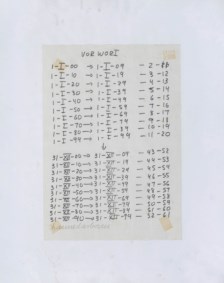 VORWORT
1-I-00 → 1-I-09 — 2-11
1-I-10 → 1-I-19 — 3-12
1-I-20 → 1-I-29 — 4-13
1-I-30 → 1-I-39 — 5-14
1-I-40 → 1-I-49 — 6-15
1-I-50 → 1-I-59 — 7-16
1-I-60 → 1-I-69 — 8-17
1-I-70 → 1-I-79 — 9-18
1-I-80 → 1-I-89 — 10-19
1-I-90 → 1-I-99 — 11-20
↓
31-XII-00 → 31-XII-09 — 43-52
31-XII-10 → 31-XII-19 — 44-53
31-XII-20 → 31-XII-29 — 45-54
31-XII-30 → 31-XII-39 — 46-55
31-XII-40 → 31-XII-49 — 47-56
31-XII-50 → 31-XII-59 — 48-57
31-XII-60 → 31-XII-69 — 49-58
31-XII-70 → 31-XII-79 — 50-59
31-XII-80 → 31-XII-89 — 51-60
31-XII-90 → 31-XII-99 — 52-61